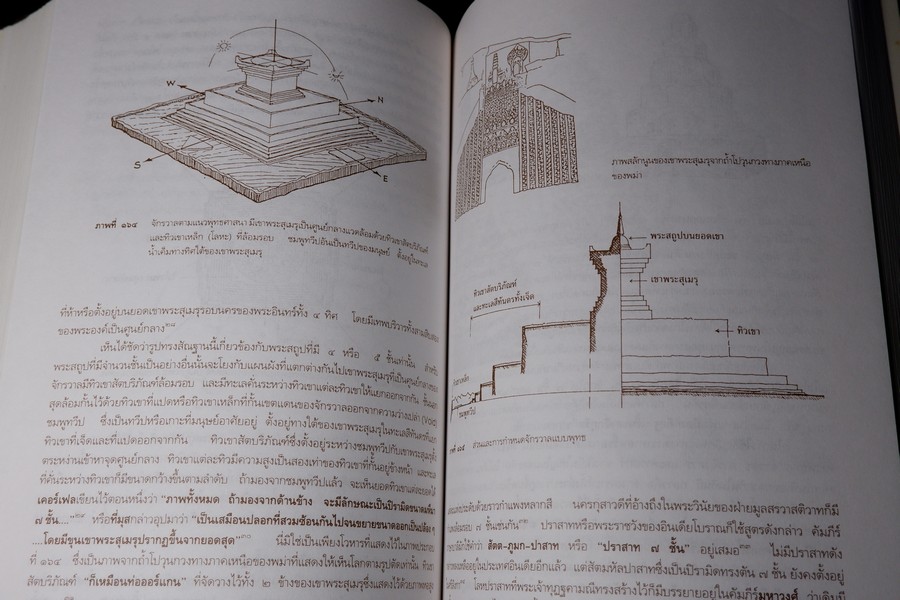 W
N
S
E
ภาพที่ ๑๖๔ จักรวาลตามแนวพุทธศาสนา มีเขาพระสุเมรุเป็นศูนย์กลางแวดล้อมด้วยทิวเขาสัตบริภัณฑ์
และทิวเขาเหล็ก (โลหะ) ที่ล้อมรอบ ชมพูทวีปอันเป็นทวีปของมนุษย์ ตั้งอยู่ในทะเล
น้ำเค็มทางทิศใต้ของเขาพระสุเมรุ
ที่ห้าหรือตั้งอยู่บนยอดเขาพระสุเมรุรอบนครของพระอินทร์ทั้ง ๔ ทิศ โดยมีเทพบริวารทั้งสามสิบสอง
ของพระองค์เป็นศูนย์กลาง
เห็นได้ชัดว่ารูปทรงสัณฐานนี้เกี่ยวข้องกับพระสถูปที่มี ๔ หรือ ๕ ชั้นเท่านั้น สำหรับ
พระสถูปที่มีจำนวนชั้นเป็นอย่างอื่นนั้นจะโยงกับแผนผังที่แตกต่างกันไปเขาพระสุเมรุที่เป็นศูนย์กลางของ
จักรวาลมีทิวเขาสัตบริภัณฑ์ล้อมรอบ และมีทะเลคั่นระหว่างทิวเขาแต่ละทิวเขาให้แยกออกจากกัน ชั้นนอก
สุดล้อมกั้นไว้ด้วยทิวเขาที่แปดหรือทิวเขาเหล็กที่กั้นเขตแดนของจักรวาลออกจากความว่างเปล่า (Void)
ชมพูทวีป ซึ่งเป็นทวีปหรือเกาะที่มนุษย์อาศัยอยู่ ตั้งอยู่ทางใต้ของเขาพระสุเมรุในทะเลสีทันดรที่แยก
ทิวเขาที่เจ็ดและที่แปดออกจากกัน ทิวเขาสัตบริภัณฑ์ซึ่งตั้งอยู่ระหว่างชมพูทวีปกับเขาพระสุเมรุสูงขึ้น
ตระหง่านเข้าหาจุดศูนย์กลาง ทิวเขาแต่ละทิวมีความสูงเป็นสองเท่าของทิวเขาที่กั้นอยู่ข้างหน้า และทะเล
ที่คั่นระหว่างทิวเขาก็มีขนาดกว้างขึ้นตามลำดับ ถ้ามองจากชมพูทวีปแล้ว จะเห็นยอดทิวเขาแต่ละยอดได้
เคอร์เฟลเขียนไว้ตอนหนึ่งว่า "ภาพทั้งหมด ถ้ามองจากด้านข้าง จะมีลักษณะเป็นปิรามิดขนาดมหึมา
๗ ชั้น...." หรือที่มุสกล่าวอุปมาว่า "เป็นเสมือนปลอกที่สวมซ้อนกันไปจนขยายขนาดออกเป็นปล้อง ๆ
....โดยมีขุนเขาพระสุเมรุปรากฏขึ้นจากยอดสุด" นี่มิใช่เป็นเพียงโวหารที่แสดงไว้ในภาพประกอบ
ที่ ๑๖๔ ซึ่งเป็นภาพจากถ้ำโปวุนกวงทางภาคเหนือของพม่าที่แสดงให้เห็นโลกตามรูปตัดเท่านั้น ทิวเขา
สัตบริภัณฑ์ "ก็เหมือนท่อออร์แกน" ที่จัดวางไว้ทั้ง ๒ ข้างของเขาพระสุเมรุซึ่งแสดงไว้ด้วยภาพ
ภาพสลักนูนของเขาพระสุเมรุจากถ้ำโปวุนกวงทางภาคเหนือ
ของพม่า
พระสถูปบนยอดเขา
เขาพระสุเมรุ
ทิวเขาสัตบริภัณฑ์
และทะเลสีทันดรทั้งเจ็ด
ทิวเขา
ชมพูทวีป
ส่วนและการกำหนดจักรวาลแบบพุทธ
ประดับด้วยราวกำแพงหลากสี นครกุสาวดีที่อ้างถึงในพระวินัยของฝ่ายมูลสรรวาสติวาทก็มี
ล้อมรอบ ๗ ชั้นเช่นกัน ปราสาทหรือพระราชวังของอินเดียโบราณก็ใช้สูตรดังกล่าว คัมภีร์
ว่า สัตต-ภูมก-ปาสาท หรือ "ปราสาท ๗ ชั้น" อยู่เสมอ ไม่มีปราสาทดัง
อยู่ในประเทศอินเดียอีกแล้ว แต่สัตมหัลปาสาทซึ่งเป็นปิรามิดทรงตัน ๗ ชั้น ยังคงตั้งอยู่
โลหปราสาทที่พระเจ้าทุฏฐคามณีทรงสร้างไว้ก็มีบรรยายอยู่ในคัมภีร์มหาวงศ์ ว่าเดิมมี